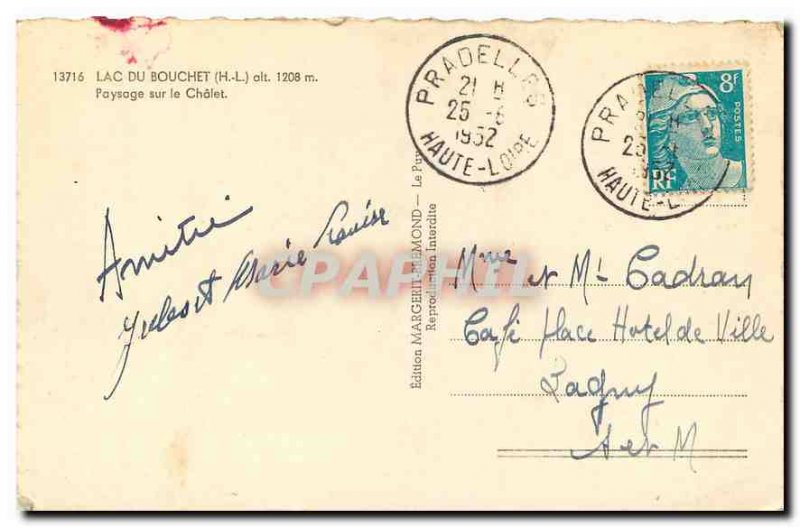 13716 LAC DU BOUCHET (H.-L.) alt. 1208 m.
Paysage sur le Châlet.
PRADELLES
21 H
25 -6
1952
HAUTE-LOIRE
8f
POSTES
RF
PRADEL
25
HAUTE-L
Amitié
et Marie Louise
Édition MARGERIT-BREMOND — Le Puy
Reproduction Interdite
CPAPHIL
Mme et Mr Cadran
Café Place Hotel de Ville
Lagny
S et M